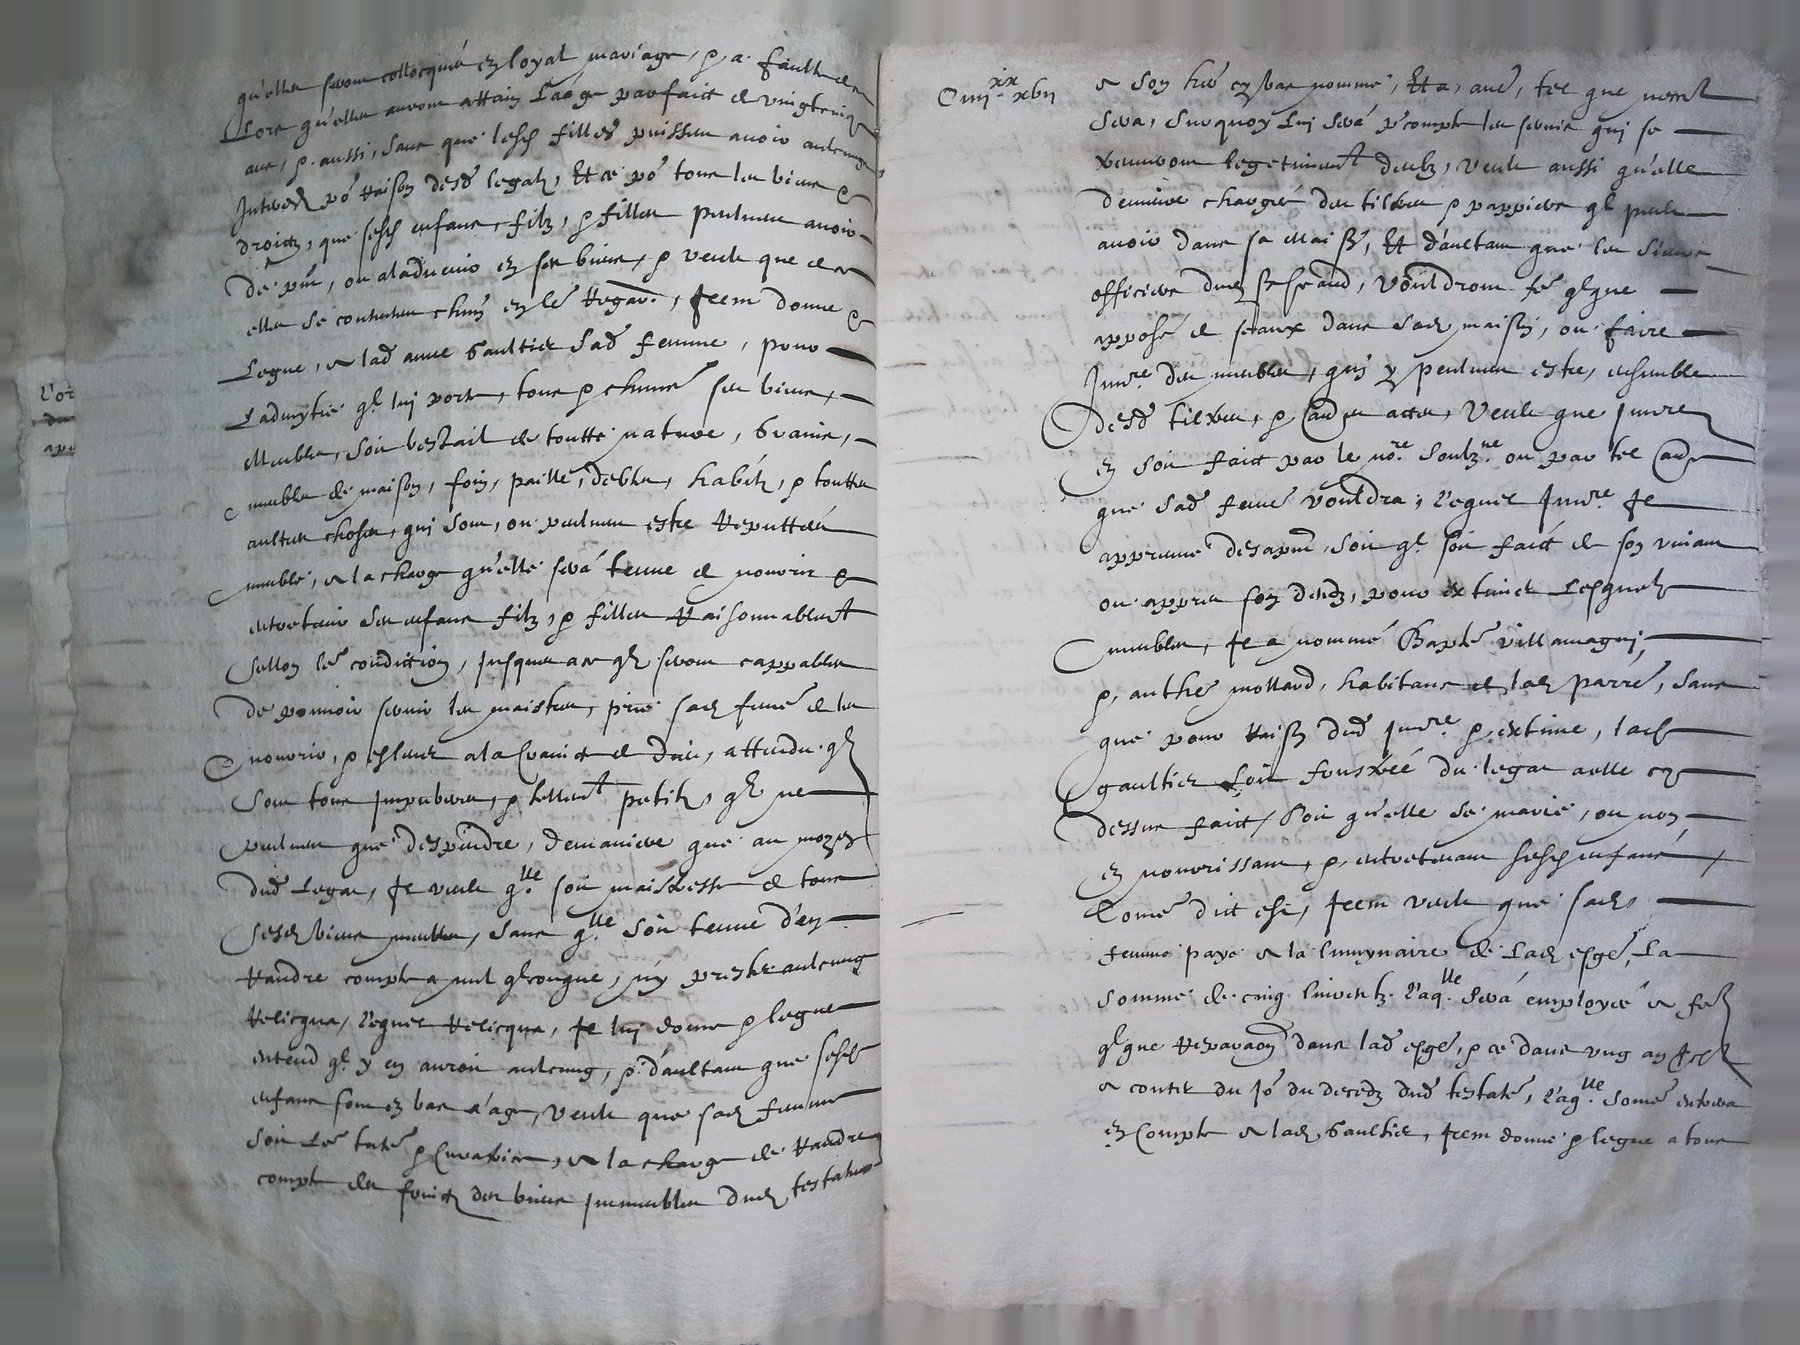 qu'elles seront collocquées en loyal mariage, & a faulte de ce
Lors qu'elles auront attain l'aage parfaict de vingtcinq
ans, & aussi, sans que lesd filles puissent avoir aulcungz
Interestz po raison desd legatz, Et ce po tous les biens &
droictz, que sesd enfans, filz, & filles peulvent avoir
de pnt, ou aladvenir en ses biens, & veult que de ce
elles se contentent chune en le regard, Item donne &
Legue, a lad anne Gaultier sad femme, pour
Ladmytie ql lui porte, tous & chuns ses biens,
Meubles, soit bestail de toutte nature, Grains,
meubles de maison, foin, paille, debtes, habitz, & touttes
aultres choses, qui sont, ou peulvent estre reputtées
meubles, a la charge qu'elle sera tenue de nourrir &
entretenir ses enfans filz, & filles Raisonnablemt
sellon le condittion, jusques a ce ql seront cappables
de pouvoir servir les maistres, prie sad feme de les
nourrir, & eslever a la crainte de dieu, attendu ql
sont tous impuberes, & tellemt petitz, ql ne
peulvent que despendre, de maniere que au moyen
dud Legat, Je veult qlle soit maistresse de tous
sesd biens meubles, sans qlle soit tenue d'en
Randre compte a nul qlconque, ny prester aulcung
Relicqua, lequel Relicqua, Je lui donne & legue
entend ql y en auroit aulcung, & d'aultant que sesd
enfans sont en bas a'age, veult que sad femme
soit le tute & curatrice, a la charge de Randre
compte des fruictz des biens jmmeubles dud testateur
L'or
du
apr
Ciiii xx xvii
a son here cy bas nommé, Et a, avec, tel que verra
sera, Surquoy Lui sera p compte les servis qui se
trouveront legetimemt deubz, Veult aussi qu'elle
demeure chargée des tiltres & pappiers ql peult
avoir dans sa Maison, Et d'aultant que les Sieurs
officiers dud vouldront fe qlque
apposé de seaux dans sad maison, ou faire
Invre des meubles, qui y peulvent estre, ensemble
desd tiltres, & aultres actes, Veult que jnvre
en soit faict par le nore soubzne ou par tel aultre
que sad feme vouldra, lequel Invre Je
appruuve desapnt, soit ql soit faict de son vivant
ou appres son deces, pour extimer Lesquelz
meubles, Je a nommé Baple Villamagni,
& anthe mollard, habitans de lad parre, sans
que pour Raison dud jnvre & extime, lad
gaultier soit fouscée du legat a elle cy
dessus faict, soit qu'elle se marie, ou non
en nourrissant, & entretenant sesd enfans,
Come dict est, Item veult que sad
femme paye a la lumynaire de Lad esge, La
somme de cinq livres tz. l'aqlle sera employée a fe
qlque Reparaon dans lad esge, & ce dans ung an
a conter du jo du deces dud testate, l'aqlle some entrera
en Compte a lad Gaultier, Item donne & legue a tous